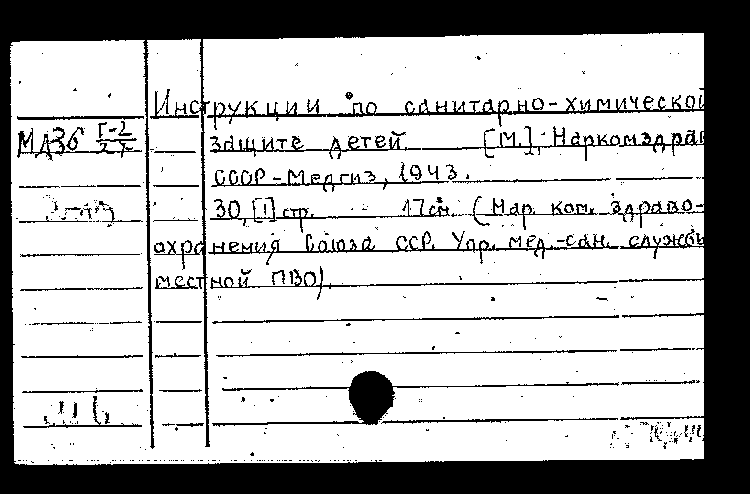 Инструкции по санитарно-химической
МД36 Г-2/27 защите детей. [М.], Наркомздрав
СССР-Медгиз, 1943.
30, [1] стр. 17 см. (Нар. ком. здраво-
охранения Союза ССР. Упр. мед.-сан. службы
местной ПВО).